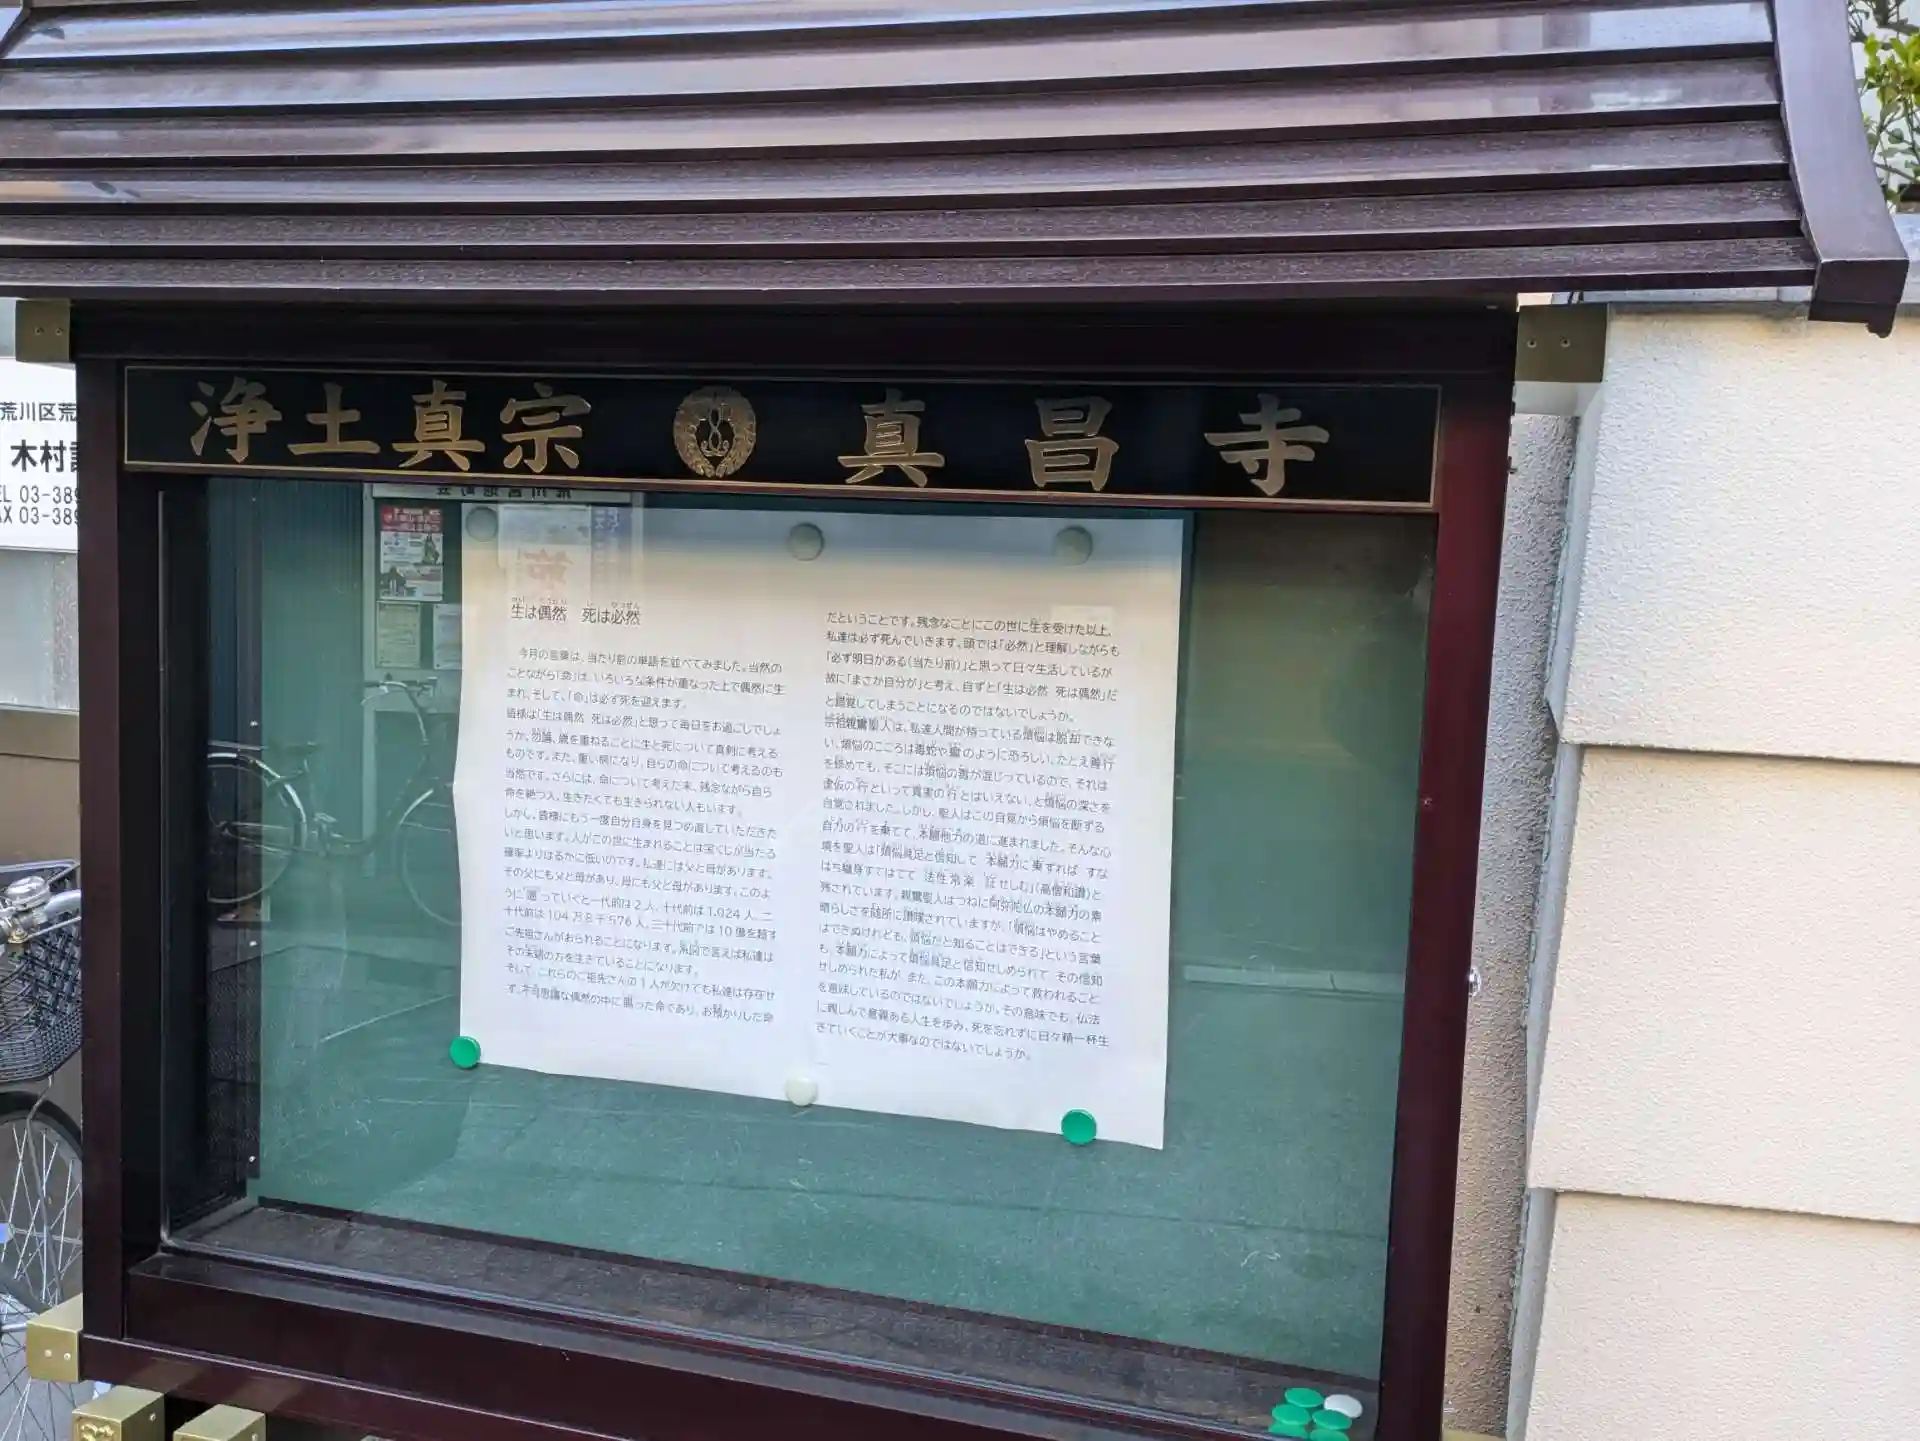 浄土真宗 真昌寺
荒川区荒
木村
EL 03-389
AX 03-389
生は偶然 死は必然
今月の言葉は、当たり前の単語を並べてみました。当然の
ことながら「命」は、いろいろな条件が重なった上で偶然に生
まれ、そして、「命」は必ず死を迎えます。
皆様は「生は偶然 死は必然」と思って毎日をお過ごしでしょ
うか。勿論、歳を重ねるごとに生と死について真剣に考える
ものです。また、重い病になり、自らの命について考えるのも
当然です。さらには、命について考えた末、残念ながら自ら
命を絶つ人、生きたくても生きられない人もいます。
しかし、皆様にもう一度自分自身を見つめ直していただきた
いと思います。人がこの世に生まれることは宝くじが当たる
確率よりはるかに低いのです。私達には父と母があります。
その父にも父と母があり、母にも父と母があります。このよ
うに遡っていくと一代前は2人、十代前は1,024人、二
十代前は104万8千576人、三十代前では10億を超す
ご先祖さんがおられることになります。系図で言えば私達は
その末端の方を生きていることになります。
そして、これらのご祖先さんの1人が欠けても私達は存在せ
ず、不可思議な偶然の中に賜った命であり、お預かりした命
だということです。残念なことにこの世に生を受けた以上、
私達は必ず死んでいきます。頭では「必然」と理解しながらも
「必ず明日がある(当たり前)」と思って日々生活しているが
故に「まさか自分が」と考え、自ずと「生は必然 死は偶然」だ
と錯覚してしまうことになるのではないでしょうか。
宗祖親鸞聖人は、私達人間が持っている煩悩は脱却できな
い、煩悩のこころは毒蛇や蠍のように恐ろしい、たとえ善行
を修めても、そこには煩悩の毒が混じっているので、それは
虚仮の行といって真実の行とはいえない、と煩悩の深さを
自覚されました。しかし、聖人はこの自覚から煩悩を断ずる
自力の行を棄てて、本願他力の道に進まれました。そんな心
境を聖人は「煩悩具足と信知して 本願力に乗ずれば すな
はち穢身すてはてて 法性常楽 証せしむ」(高僧和讃)と
残されています。親鸞聖人はつねに阿弥陀仏の本願力の素
晴らしさを随所に讃嘆されていますが、「煩悩はやめること
はできぬけれども、煩悩だと知ることはできる」という言葉
も、本願力によって煩悩具足と信知せしめられて その信知
せしめられた私が、また、この本願力によって救われること
を意味しているのではないでしょうか。その意味でも、仏法
に親しんで意義ある人生を歩み、死を忘れずに日々精一杯生
きていくことが大事なのではないでしょうか。